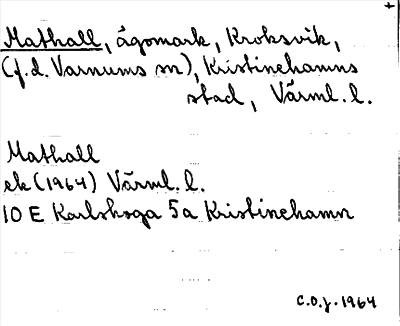 +
Mathall, ägomark, Kroksvik,
(f.d. Varnums sn), Kristinehamns
stad, Värml. l.
Mathall
ek (1964) Värml. l.
10 E Karlskoga 5a Kristinehamn
C.O.J. 1964